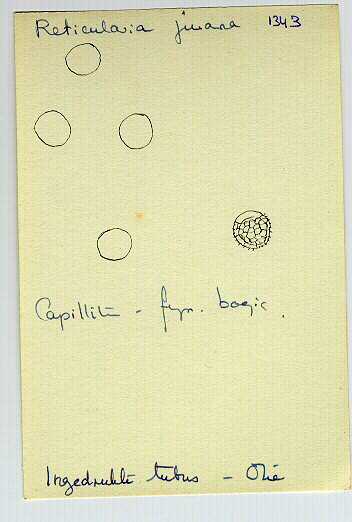 Reticularia jurana 1343
Capillitii - fijn.
Ingedrukte tubus - Olie